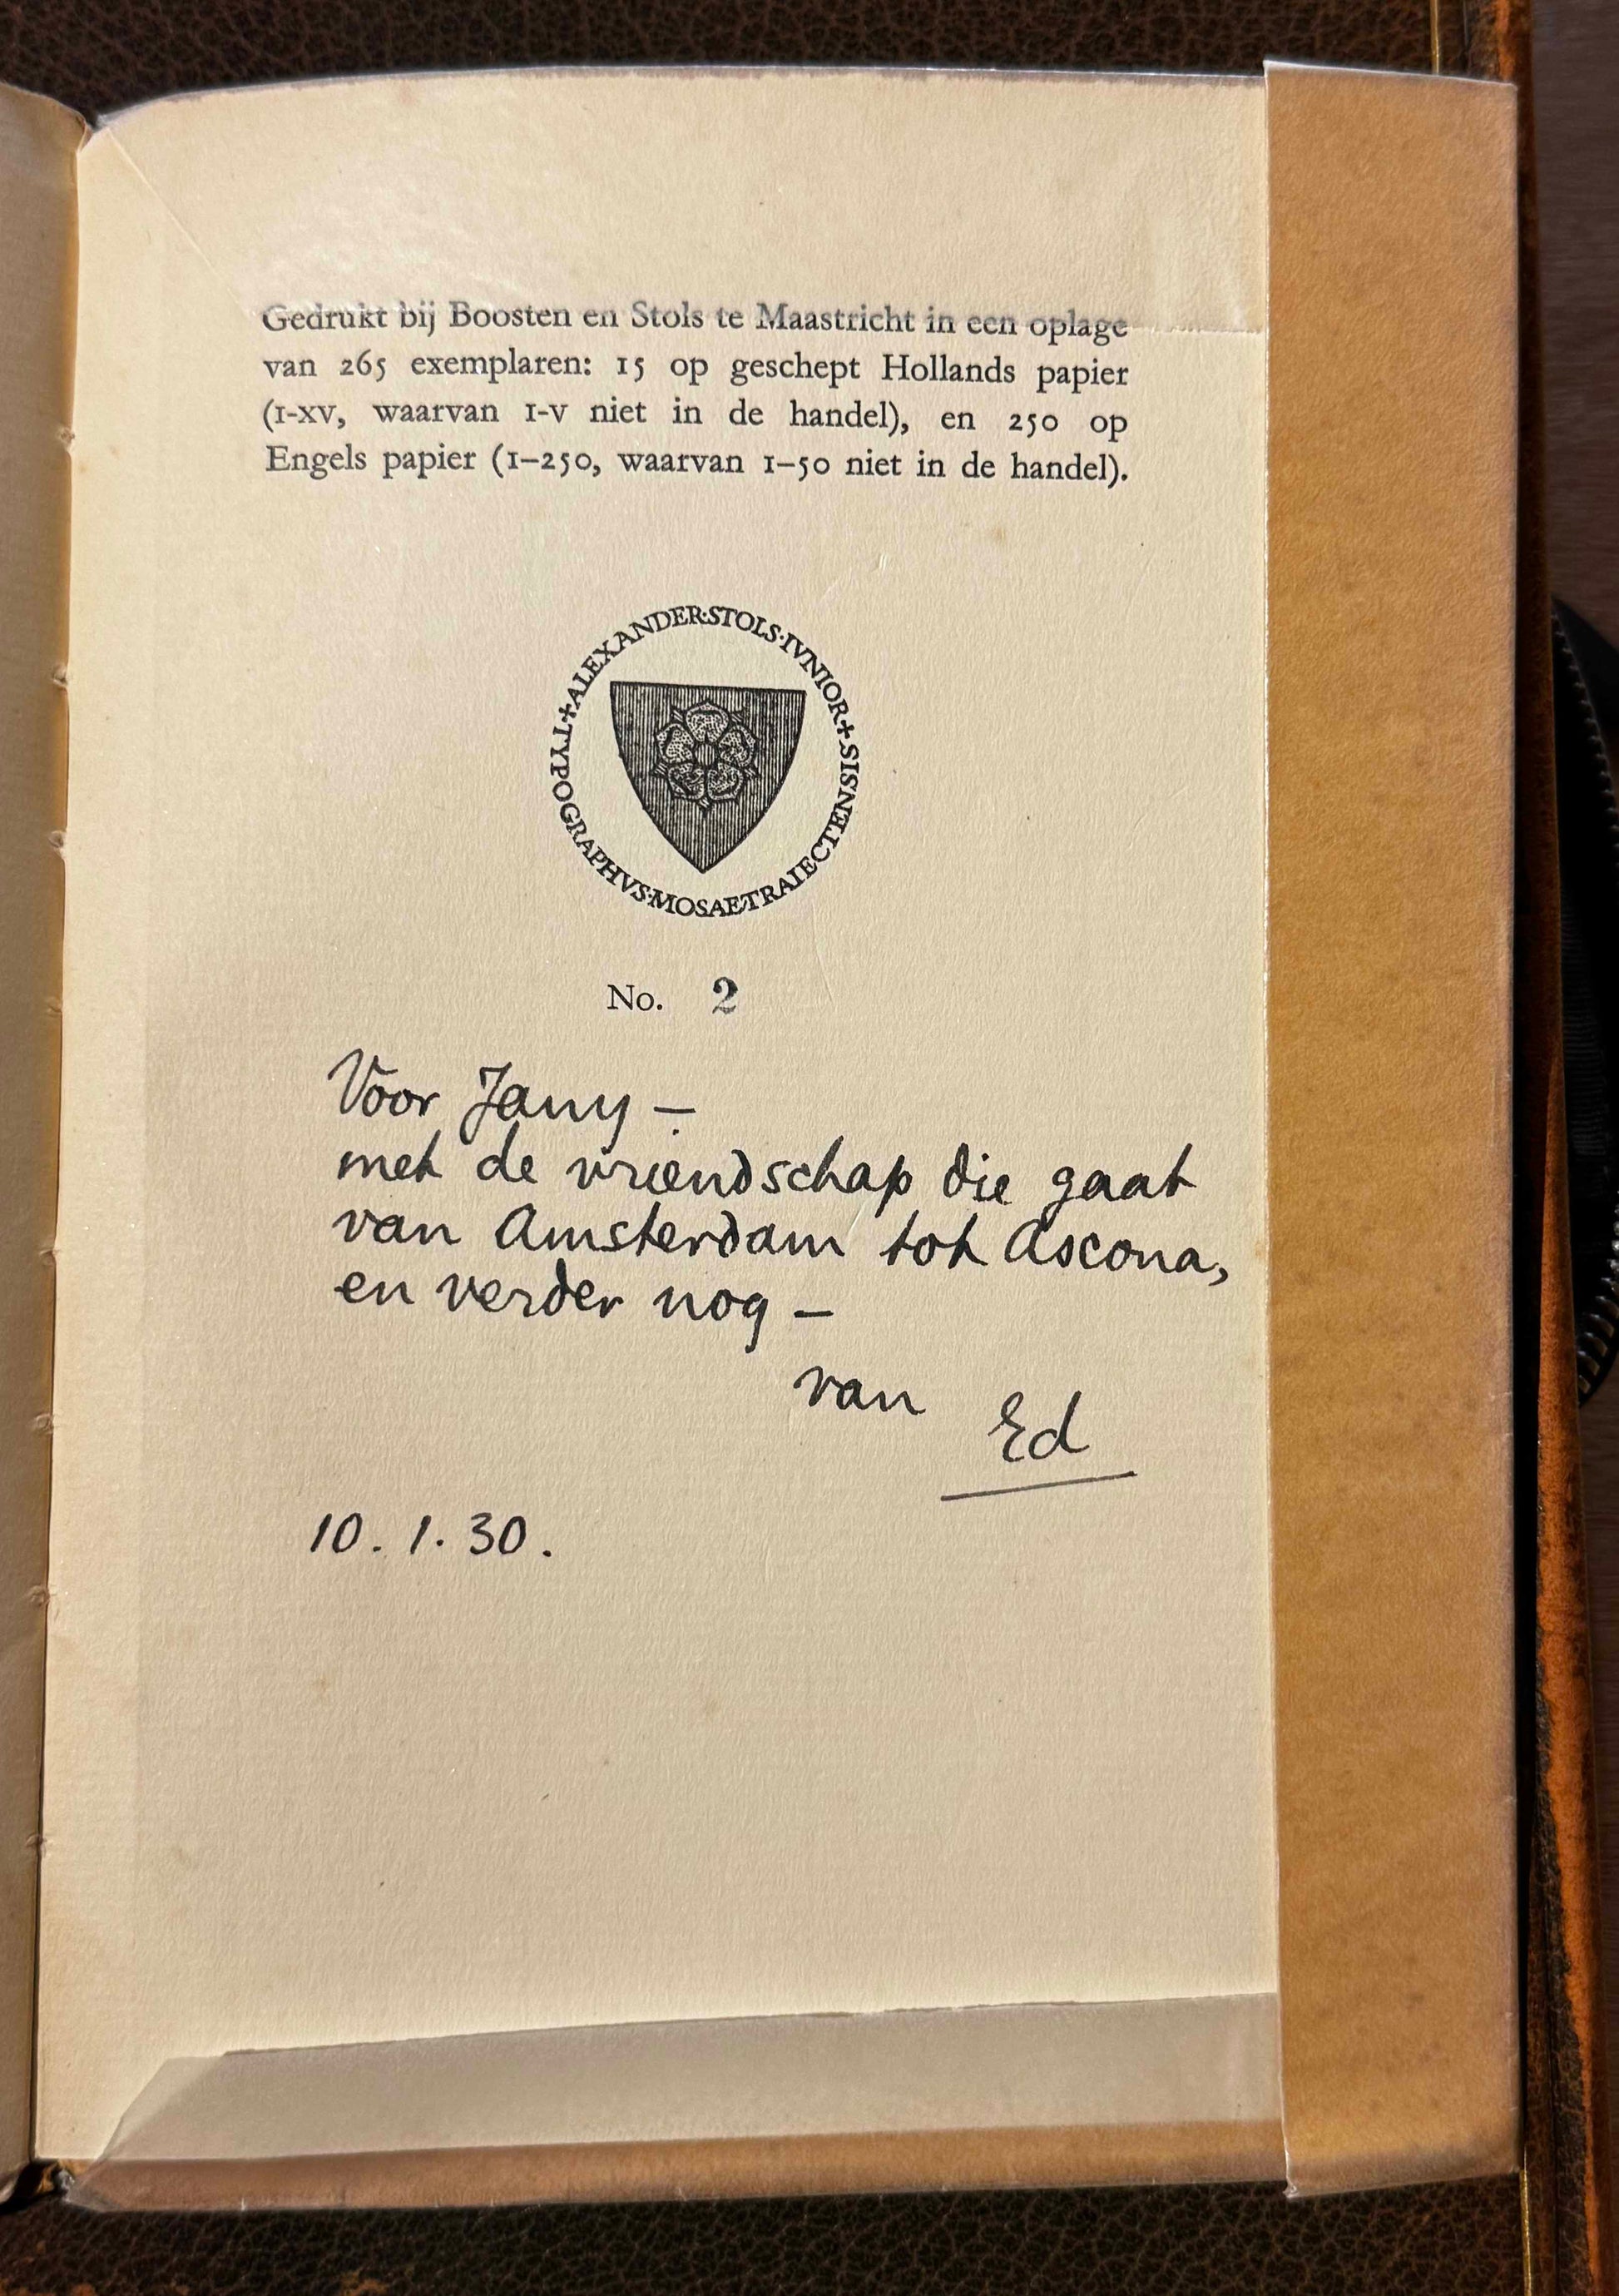 Gedrukt bij Boosten en Stols te Maastricht in een oplage
van 265 exemplaren: 15 op geschept Hollands papier
(I-XV, waarvan I-V niet in de handel), en 250 op
Engels papier (1–250, waarvan 1–50 niet in de handel).
+ALEXANDER·STOLS·IVNIOR+
TYPOGRAPHVS·MOSAETRAIECTENSIS
No. 2
Voor Jany –
met de vriendschap die gaat
van Amsterdam tot Ascona,
en verder nog –
van Ed
10.1.30.